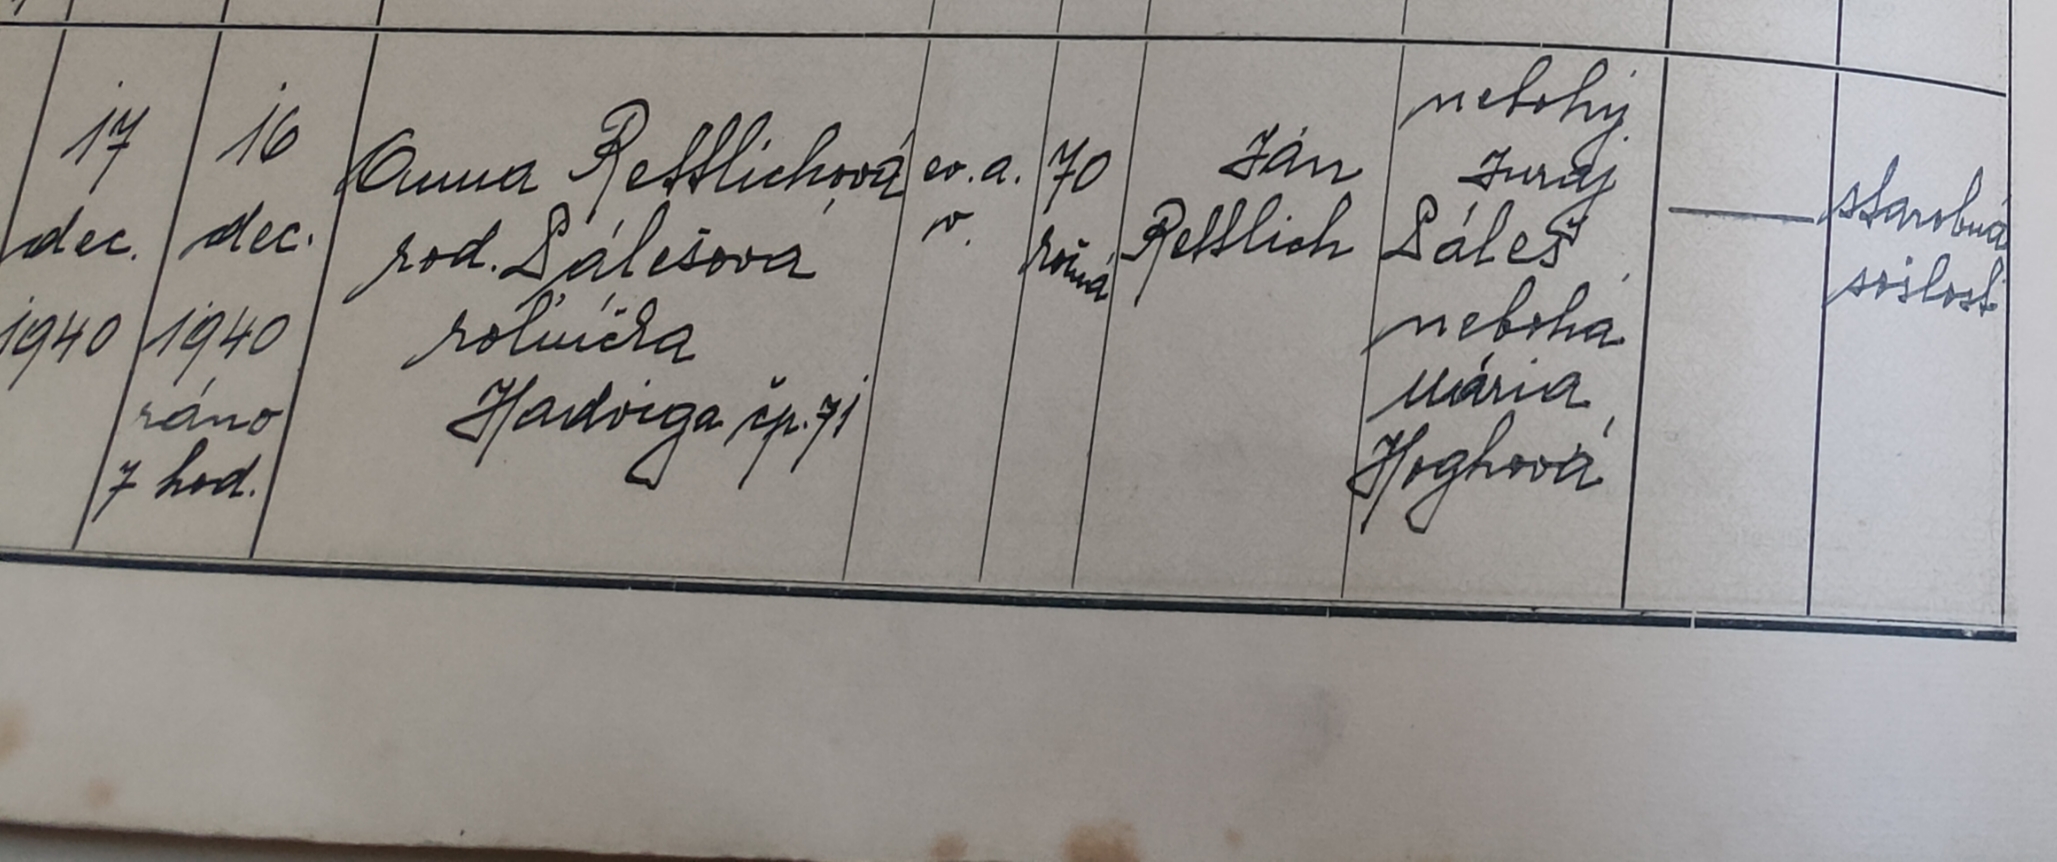 17
dec.
1940
16
dec.
1940
ráno
7 hod.
Anna Rettlichová
rod. Pálešová
roľníčka
Hadviga čp. 71
ev. a.
v.
70
ročná
Ján
Rettlich
nebohý
Juraj
Páleš
nebohá
Mária
Hoghová
starobná
sošlosť